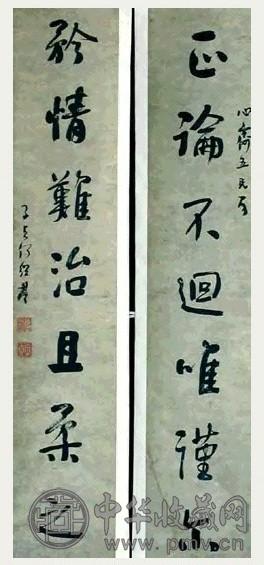 心齋五兄
正論不迴唯謹
矜情難治且柔之
子貞何紹基
中华收藏网
www.pmv.cn